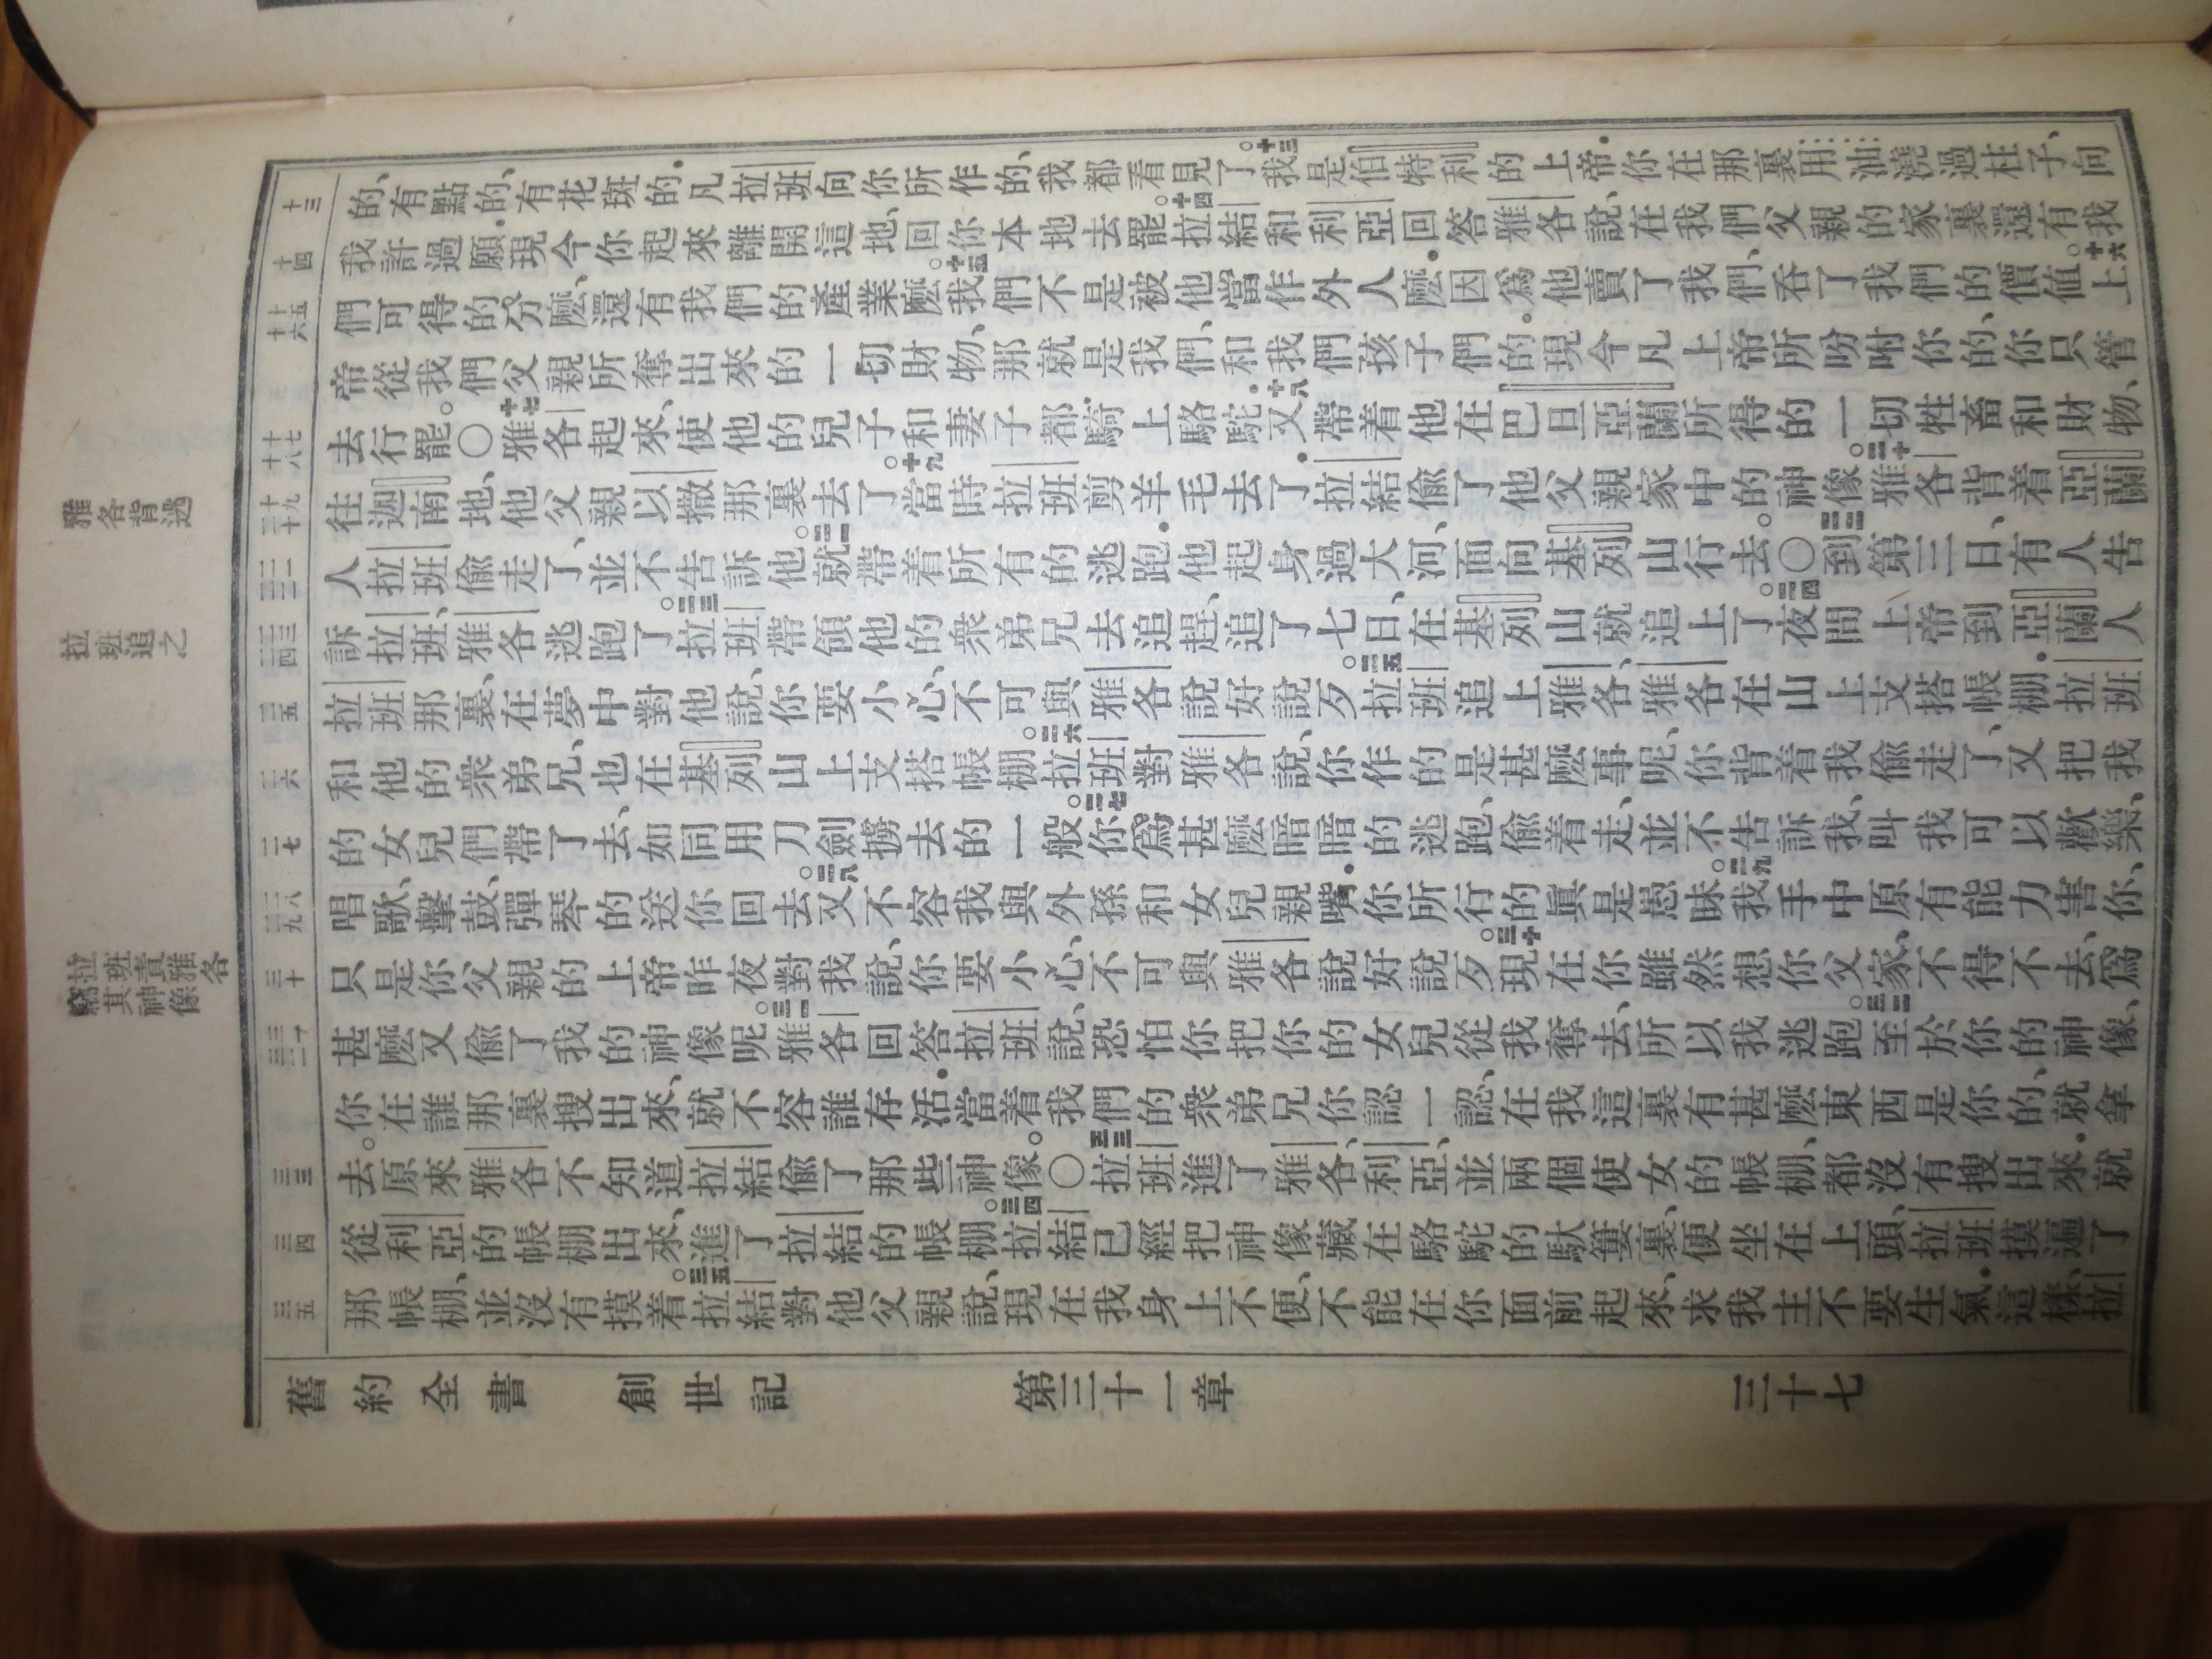 雅各背逃
拉班追之
拉班責雅各
竊其神像
十三
十四
十五
十六
十七
十八
十九
二十
二一
二二
二三
二四
二五
二六
二七
二八
二九
三十
三一
三二
三三
三四
三五
的、有點的、有花斑的．凡拉班向你所作的、我都看見了。十三我是伯特利的上帝．你在那裏用油澆過柱子、向
我許過願．現今你起來離開這地、回你本地去罷。十四拉結和利亞回答雅各說、在我們父親的家裏還有我
們可得的分麼、還有我們的產業麼。十五我們不是被他當作外人麼．因爲他賣了我們、吞了我們的價值。十六上
帝從我們父親所奪出來的一切財物、那就是我們、和我們孩子們的。現今凡上帝所吩咐你的、你只管
去行罷。〇十七雅各起來、使他的兒子和妻子都騎上駱駝．十八又帶着他在巴旦亞蘭所得的一切牲畜和財物、
往迦南地、他父親以撒那裏去了。十九當時拉班剪羊毛去了．拉結偷了他父親家中的神像。二十雅各背着亞蘭
人拉班偷走了、並不告訴他。二一就帶着所有的逃跑．他起身過大河、面向基列山行去。〇二二到第三日、有人告
訴拉班、雅各逃跑了。二三拉班帶領他的衆弟兄去追趕、追了七日、在基列山就追上了。二四夜間上帝到亞蘭人
拉班那裏、在夢中對他說、你要小心、不可與雅各說好說歹。二五拉班追上雅各、雅各在山上支搭帳棚．拉班
和他的衆弟兄、也在基列山上支搭帳棚。二六拉班對雅各說、你作的是甚麼事呢、你背着我偷走了、又把我
的女兒們帶了去、如同用刀劍擄去的一般。二七你爲甚麼暗暗的逃跑、偷着走、並不告訴我、叫我可以歡樂、
唱歌、擊鼓、彈琴的送你回去。二八又不容我與外孫和女兒親嘴．你所行的眞是愚昧。二九我手中原有能力害你、
只是你父親的上帝昨夜對我說、你要小心、不可與雅各說好說歹。三十現在你雖然想你父家、不得不去、爲
甚麼又偷了我的神像呢。三一雅各回答拉班說、恐怕你把你的女兒從我奪去、所以我逃跑。三二至於你的神像、
你在誰那裏搜出來、就不容誰存活．當着我們的衆弟兄你認一認、在我這裏有甚麼東西是你的、就拿
去。原來雅各不知道拉結偷了那些神像。〇三三拉班進了雅各、利亞、並兩個使女的帳棚、都沒有搜出來．就
從利亞的帳棚出來、進了拉結的帳棚。三四拉結已經把神像藏在駱駝的馱簍裏、便坐在上頭、拉班摸遍了
那帳棚、並沒有摸着。三五拉結對他父親說、現在我身上不便、不能在你面前起來、求我主不要生氣．這樣、拉
舊約全書　創世記　第三十一章　三十七